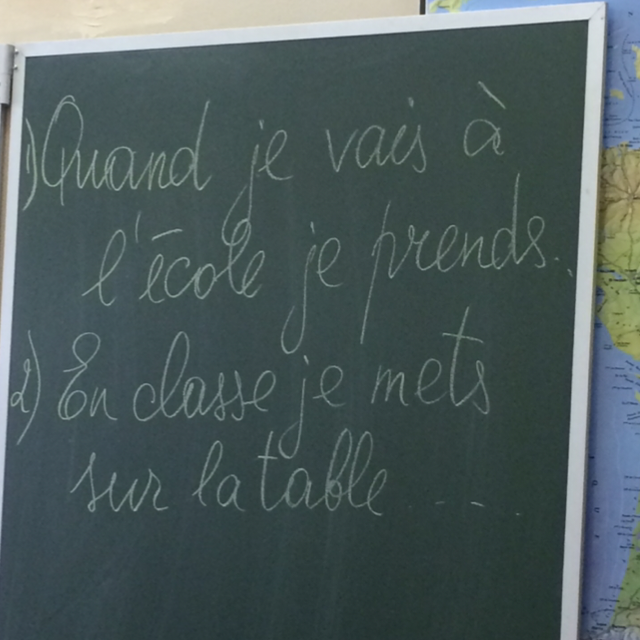 1) Quand je vais à
l'école je prends..
2) En classe je mets
sur la table ....